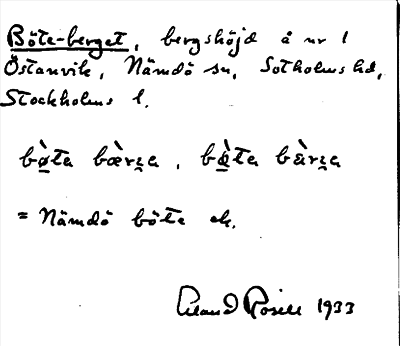 Böte-berget, bergshöjd å nr 1
Östanvik, Nämdö sn, Sotholms hd,
Stockholms l.
bø̀ta bæ̀rʒa, bɑ̀ta bàrʒa
= Nämdö böte ek.
Rosell 1933